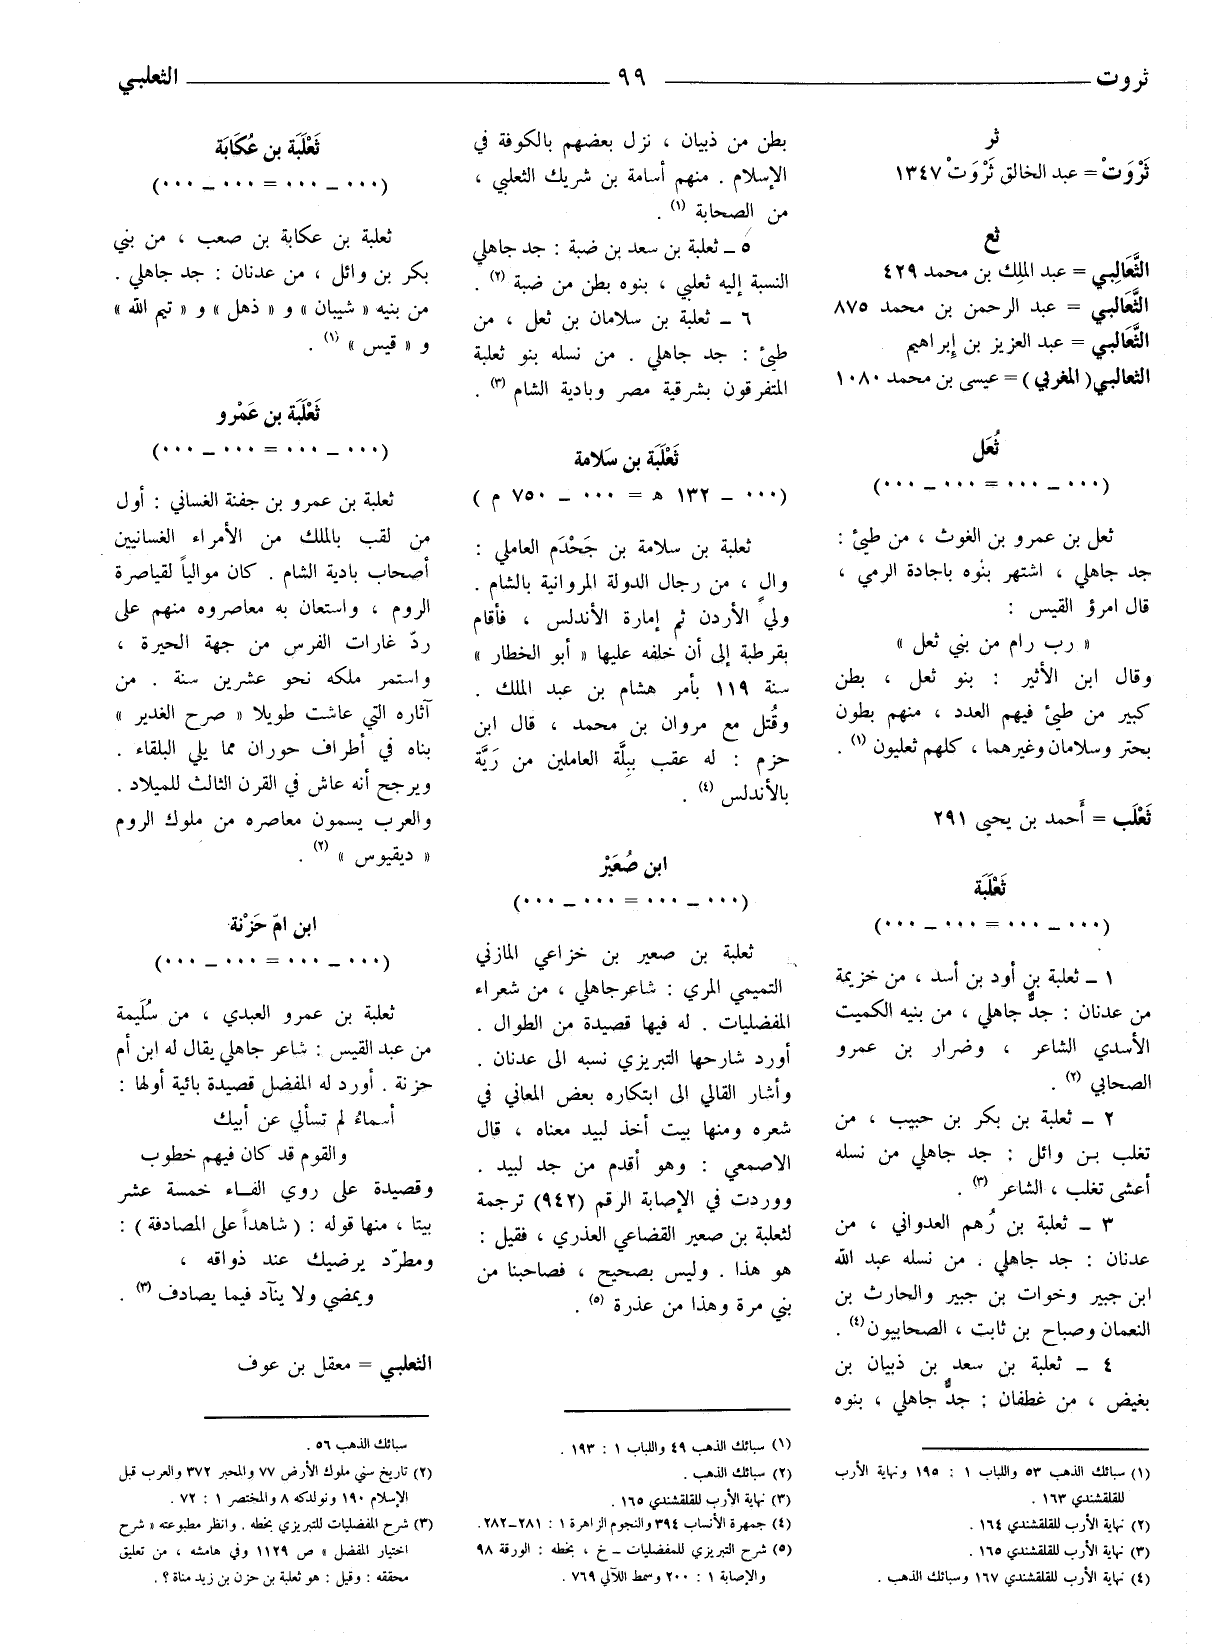 ثروت ٩٩ الثعلبي
ثر
ثَرْوَتْ = عبد الخالق ثَرْوَتْ ١٣٤٧
ثع
الثَّعَالِبي = عبد الملِك بن محمد ٤٢٩
الثَّعَالبي = عبد الرحمن بن محمد ٨٧٥
الثَّعَالبي = عبد العزيز بن إبراهيم
الثعالبي (المغربي) = عيسى بن محمد ١٠٨٠
ثُعَل
(٠٠٠ ــ ٠٠٠ = ٠٠٠ ــ ٠٠٠)
ثعل بن عمرو بن الغوث ، من طيئ :
جد جاهلي ، اشتهر بنوه باجادة الرمي ،
قال امرؤ القيس :
« رب رام من بني ثعل »
وقال ابن الأثير : بنو ثعل ، بطن
كبير من طيئ فيهم العدد ، منهم بطون
بحتر وسلامان وغيرهما ، كلهم ثعليون (١) .
ثَعْلَب = أحمد بن يحيى ٢٩١
ثَعْلَبَة
(٠٠٠ ــ ٠٠٠ = ٠٠٠ ــ ٠٠٠)
١ ــ ثعلبة بن أود بن أسد ، من خزيمة
من عدنان : جدٌّ جاهلي ، من بنيه الكميت
الأسدي الشاعر ، وضرار بن عمرو
الصحابي (٢) .
٢ ــ ثعلبة بن بكر بن حبيب ، من
تغلب بن وائل : جد جاهلي من نسله
أعشى تغلب ، الشاعر (٣) .
٣ ــ ثعلبة بن رُهم العدواني ، من
عدنان : جد جاهلي . من نسله عبد الله
ابن جبير وخوات بن جبير والحارث بن
النعمان وصباح بن ثابت ، الصحابيون (٤) .
٤ ــ ثعلبة بن سعد بن ذبيان بن
بغيض ، من غطفان : جدٌّ جاهلي ، بنوه
(١) سبائك الذهب ٥٣ واللباب ١ : ١٩٥ ونهاية الأرب
للقلقشندي ١٦٣ .
(٢) نهاية الأرب للقلقشندي ١٦٤ .
(٣) نهاية الأرب للقلقشندي ١٦٥ .
(٤) نهاية الأرب للقلقشندي ١٦٧ وسبائك الذهب .
بطن من ذبيان ، نزل بعضهم بالكوفة في
الإسلام . منهم أسامة بن شريك الثعلبي ،
من الصحابة (١) .
٥ ــ ثعلبة بن سعد بن ضبة : جد جاهلي
النسبة إليه ثعلبي ، بنوه بطن من ضبة (٢) .
٦ ــ ثعلبة بن سلامان بن ثعل ، من
طيئ : جد جاهلي . من نسله بنو ثعلبة
المتفرقون بشرقية مصر وبادية الشام (٣) .
ثَعْلَبَة بن سَلامة
(٠٠٠ ــ ١٣٢ هـ = ٠٠٠ ــ ٧٥٠ م )
ثعلبة بن سلامة بن جَحْدَم العاملي :
والٍ ، من رجال الدولة المروانية بالشام .
ولي الأردن ثم إمارة الأندلس ، فأقام
بقرطبة إلى أن خلفه عليها « أبو الخطار »
سنة ١١٩ بأمر هشام بن عبد الملك .
وقُتل مع مروان بن محمد ، قال ابن
حزم : له عقب ببِلَّة العاملين من رَيَّة
بالأندلس (٤) .
ابن صُعَيْر
(٠٠٠ ــ ٠٠٠ = ٠٠٠ ــ ٠٠٠)
ثعلبة بن صعير بن خزاعي المازني
التميمي المري : شاعر جاهلي ، من شعراء
المفضليات . له فيها قصيدة من الطوال .
أورد شارحها التبريزي نسبه الى عدنان .
وأشار القالي الى ابتكاره بعض المعاني في
شعره ومنها بيت أخذ لبيد معناه ، قال
الاصمعي : وهو أقدم من جد لبيد .
ووردت في الإصابة الرقم (٩٤٢) ترجمة
لثعلبة بن صعير القضاعي العذري ، فقيل :
هو هذا . وليس بصحيح ، فصاحبنا من
بني مرة وهذا من عذرة (٥) .
(١) سبائك الذهب ٤٩ واللباب ١ : ١٩٣ .
(٢) سبائك الذهب .
(٣) نهاية الأرب للقلقشندي ١٦٥ .
(٤) جمهرة الأنساب ٣٩٤ والنجوم الزاهرة ١ : ٢٨١ــ٢٨٢ .
(٥) شرح التبريزي للمفضليات ــ خ ، بخطه : الورقة ٩٨
والإصابة ١ : ٢٠٠ وسمط اللآلي ٧٦٩ .
ثَعْلَبَة بن عُكَابَة
(٠٠٠ ــ ٠٠٠ = ٠٠٠ ــ ٠٠٠)
ثعلبة بن عكابة بن صعب ، من بني
بكر بن وائل ، من عدنان : جد جاهلي .
من بنيه « شيبان » و « ذهل » و « تيم الله »
و « قيس » (١) .
ثَعْلَبَة بن عَمْرو
(٠٠٠ ــ ٠٠٠ = ٠٠٠ ــ ٠٠٠)
ثعلبة بن عمرو بن جفنة الغساني : أول
من لقب بالملك من الأمراء الغسانيين
أصحاب بادية الشام . كان موالياً لقياصرة
الروم ، واستعان به معاصروه منهم على
ردّ غارات الفرس من جهة الحيرة ،
واستمر ملكه نحو عشرين سنة . من
آثاره التي عاشت طويلا « صرح الغدير »
بناه في أطراف حوران مما يلي البلقاء .
ويرجح أنه عاش في القرن الثالث للميلاد .
والعرب يسمون معاصره من ملوك الروم
« ديقيوس » (٢) .
ابن امّ حَزْنة
(٠٠٠ ــ ٠٠٠ = ٠٠٠ ــ ٠٠٠)
ثعلبة بن عمرو العبدي ، من سُلَيمة
من عبد القيس : شاعر جاهلي يقال له ابن أم
حزنة . أورد له المفضل قصيدة بائية أولها :
أسماءُ لم تسألي عن أبيك
والقوم قد كان فيهم خطوب
وقصيدة على روي الفاء خمسة عشر
بيتا ، منها قوله : (شاهداً على المصادفة) :
ومطرّد يرضيك عند ذواقه ،
ويمضي ولا ينآد فيما يصادف (٣) .
الثعلبي = معقل بن عوف
سبائك الذهب ٥٦ .
(٢) تاريخ سني ملوك الأرض ٧٧ والمحبر ٣٧٢ والعرب قبل
الإسلام ١٩٠ ونولدكه ٨ والمختصر ١ : ٧٢ .
(٣) شرح المفضليات للتبريزي بخطه . وانظر مطبوعته « شرح
اختيار المفضل » ص ١١٢٩ وفي هامشه ، من تعليق
محققه : وقيل : هو ثعلبة بن حزن بن زيد مناة ؟ .